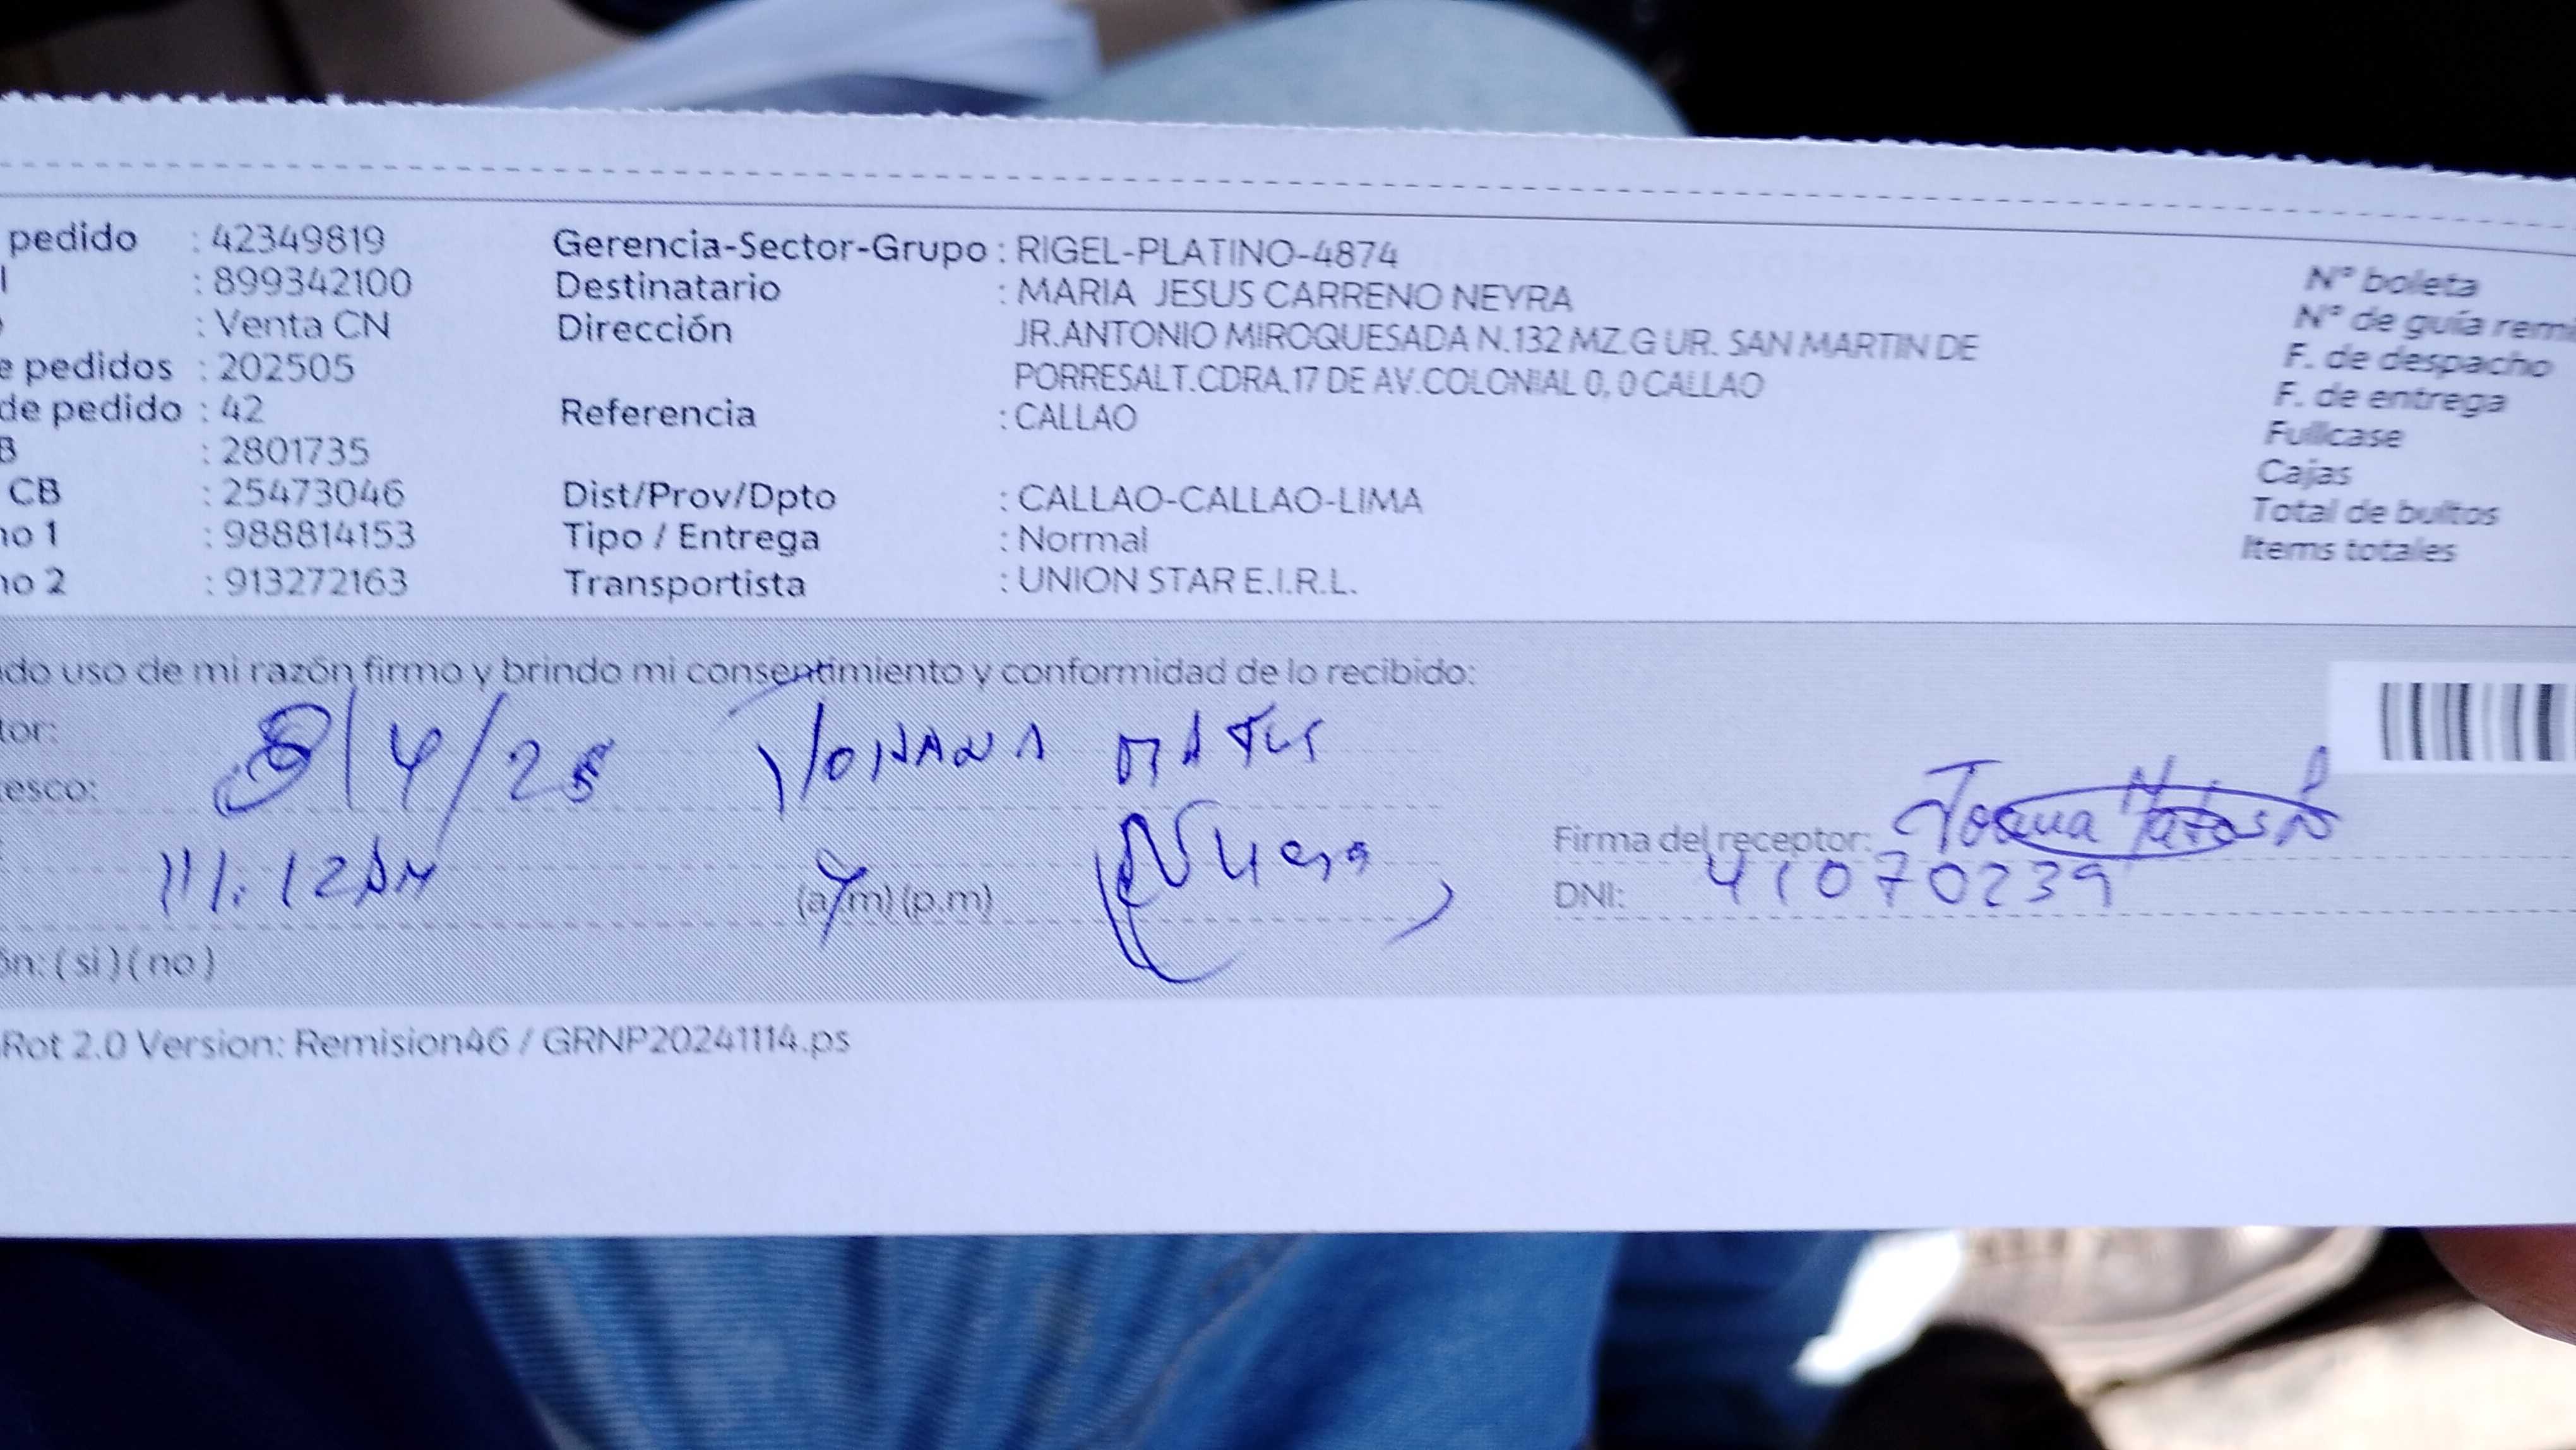 pedido : 42349819 Gerencia-Sector-Grupo : RIGEL-PLATINO-4874 N° boleta
l : 899342100 Destinatario : MARIA JESUS CARRENO NEYRA N° de guía remi
: Venta CN Dirección JR.ANTONIO MIROQUESADA N.132 MZ.G UR. SAN MARTIN DE F. de despacho
e pedidos : 202505 PORRESALT.CDRA.17 DE AV.COLONIAL 0, 0 CALLAO F. de entrega
de pedido : 42 Referencia : CALLAO Fullcase
B : 2801735 Cajas
CB : 25473046 Dist/Prov/Dpto : CALLAO-CALLAO-LIMA Total de bultos
no 1 : 988814153 Tipo / Entrega : Normal Items totales
no 2 : 913272163 Transportista : UNION STAR E.I.R.L.
ndo uso de mi razón firmo y brindo mi consentimiento y conformidad de lo recibido:
tor: 8/4/25 YOHANA MATOS
esco:
11:12AM (a.m) (p.m) Nuera Firma del receptor:
DNI: 41070239
ón: ( si ) ( no )
Rot 2.0 Version: Remision46 / GRNP20241114.ps